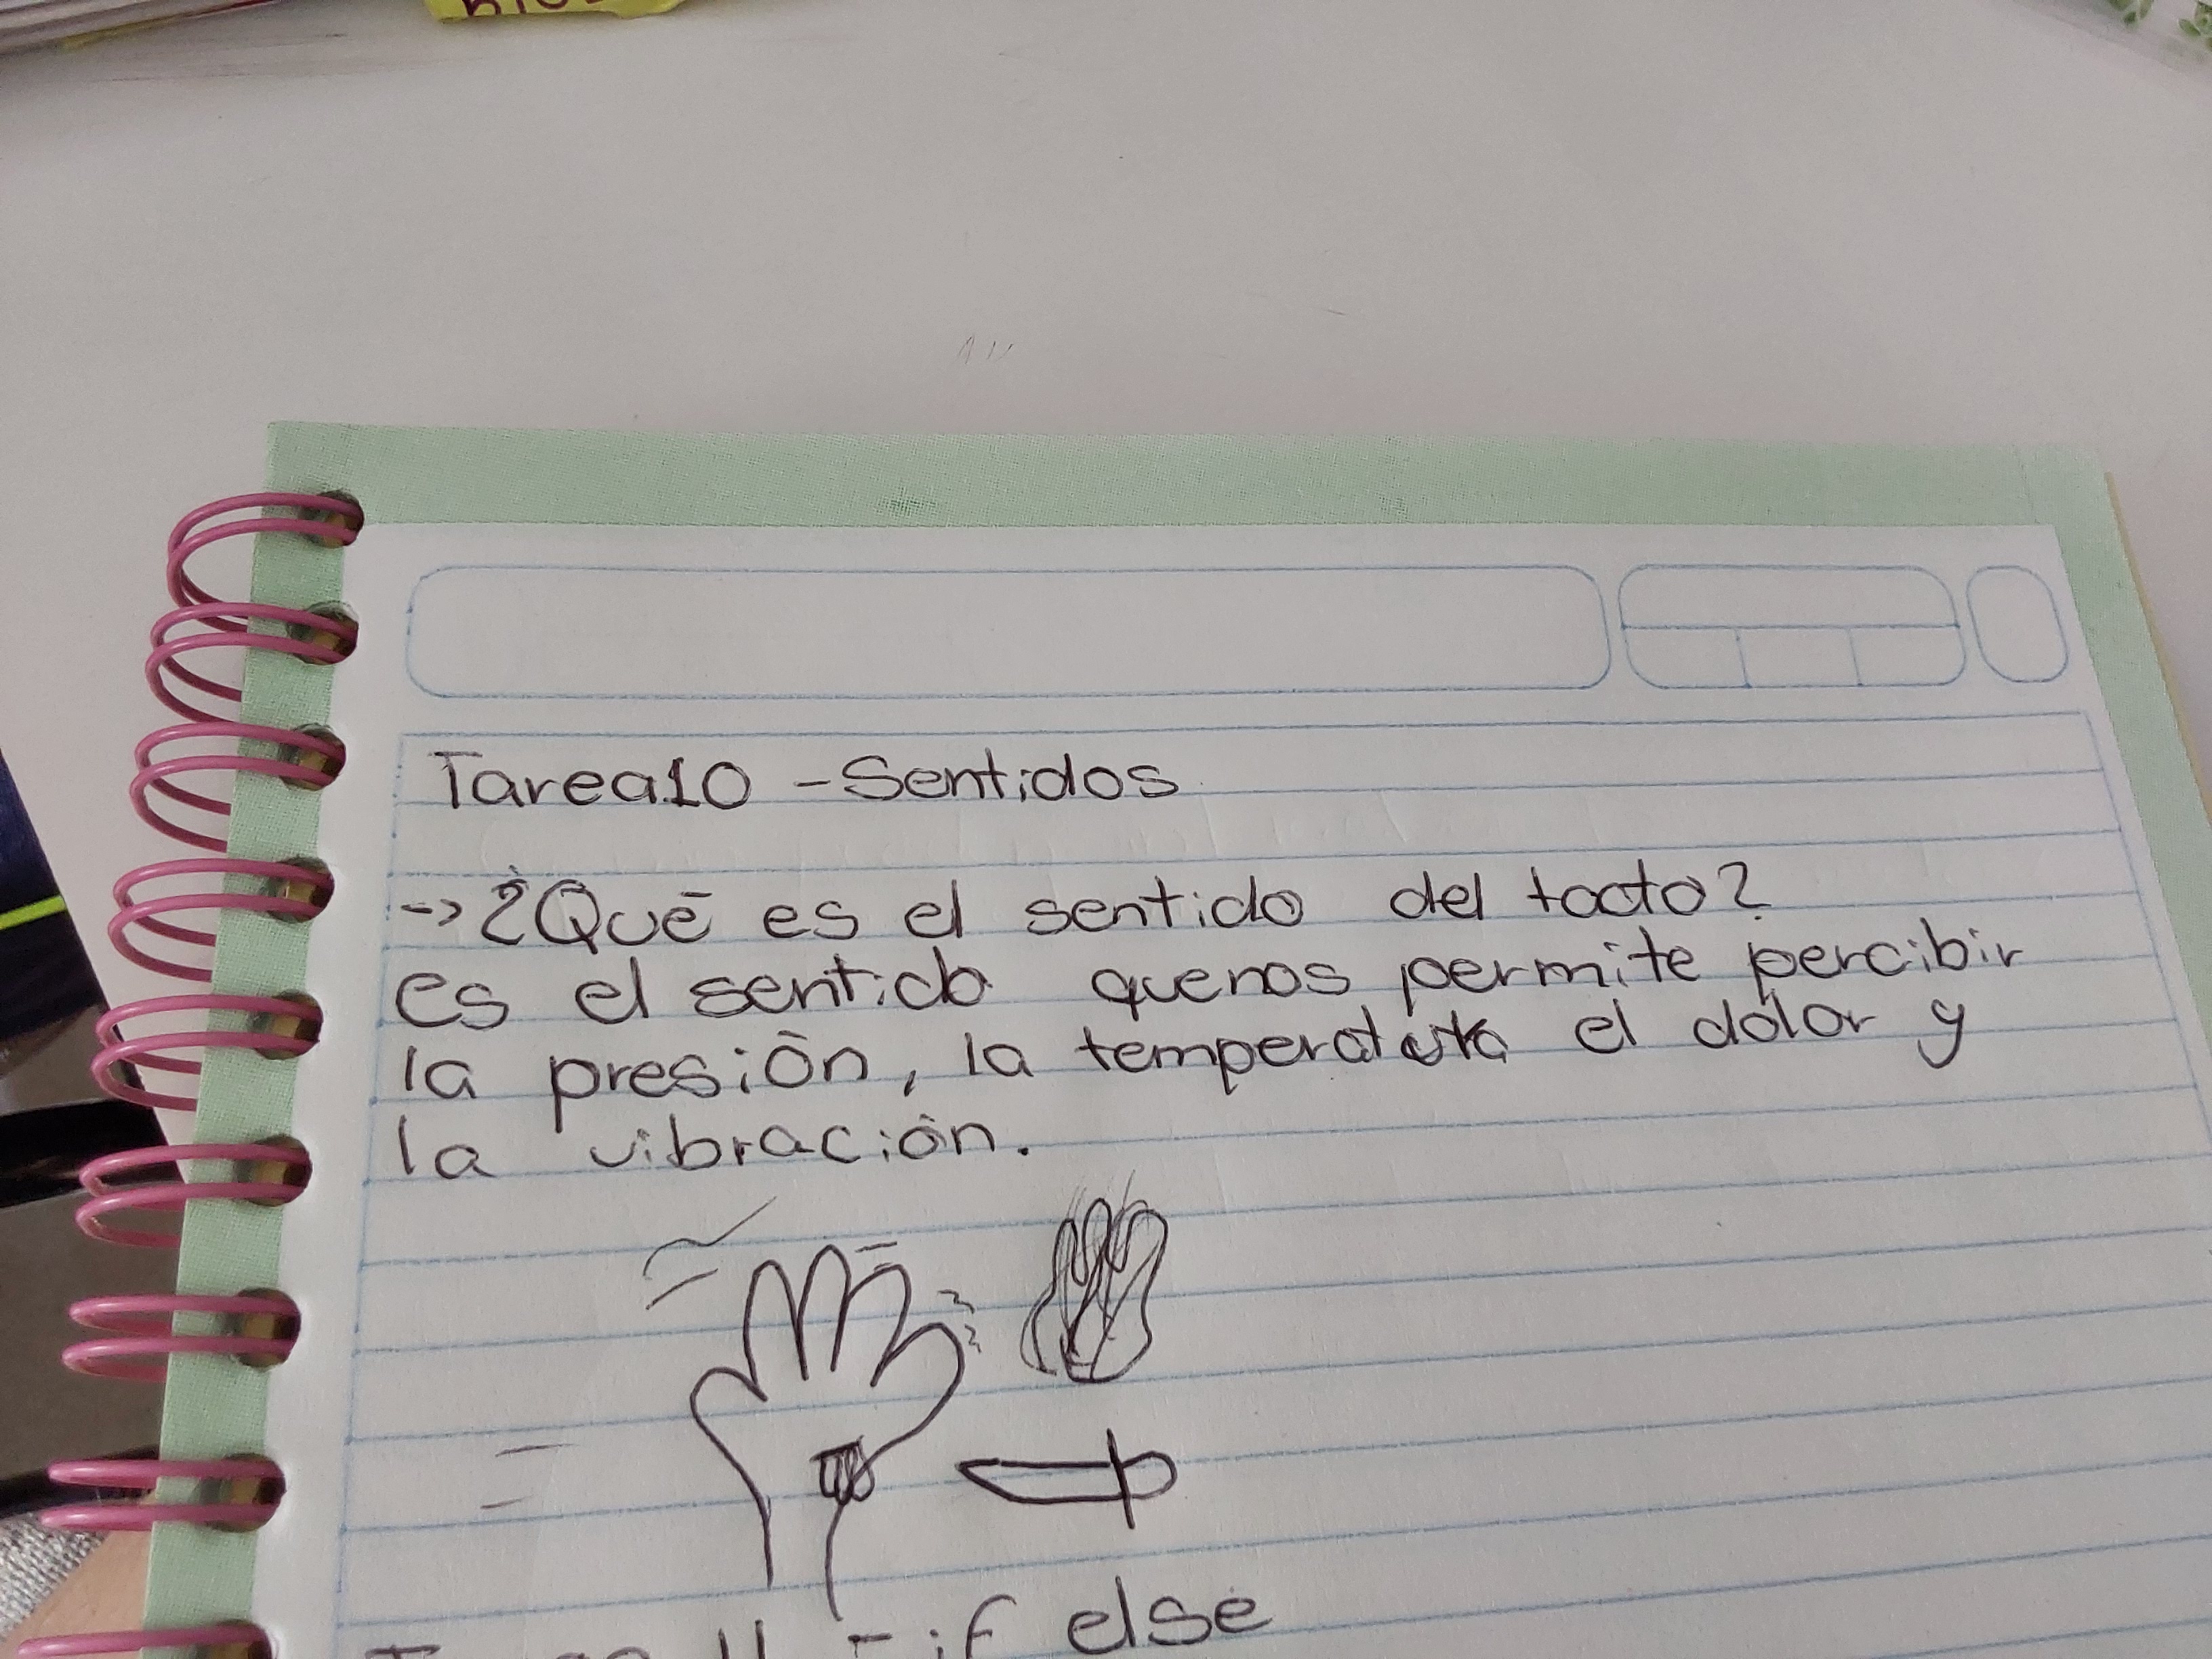 Tarea10 - Sentidos
-> ¿Qué es el sentido del tacto?
es el sentido quenos permite percibir
la presión, la temperatura el dolor y
la vibración.
11 - if else